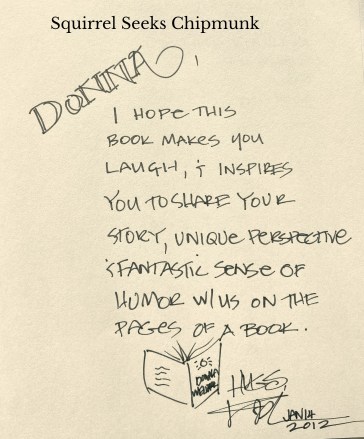 Squirrel Seeks Chipmunk
DONNA,
I HOPE THIS
BOOK MAKES YOU
LAUGH, & INSPIRES
YOU TO SHARE YOUR
STORY, UNIQUE PERSPECTIVE
& FANTASTIC SENSE OF
HUMOR W/US ON THE
PAGES OF A BOOK.
DONNA
HUGS,
JAN 14
2012